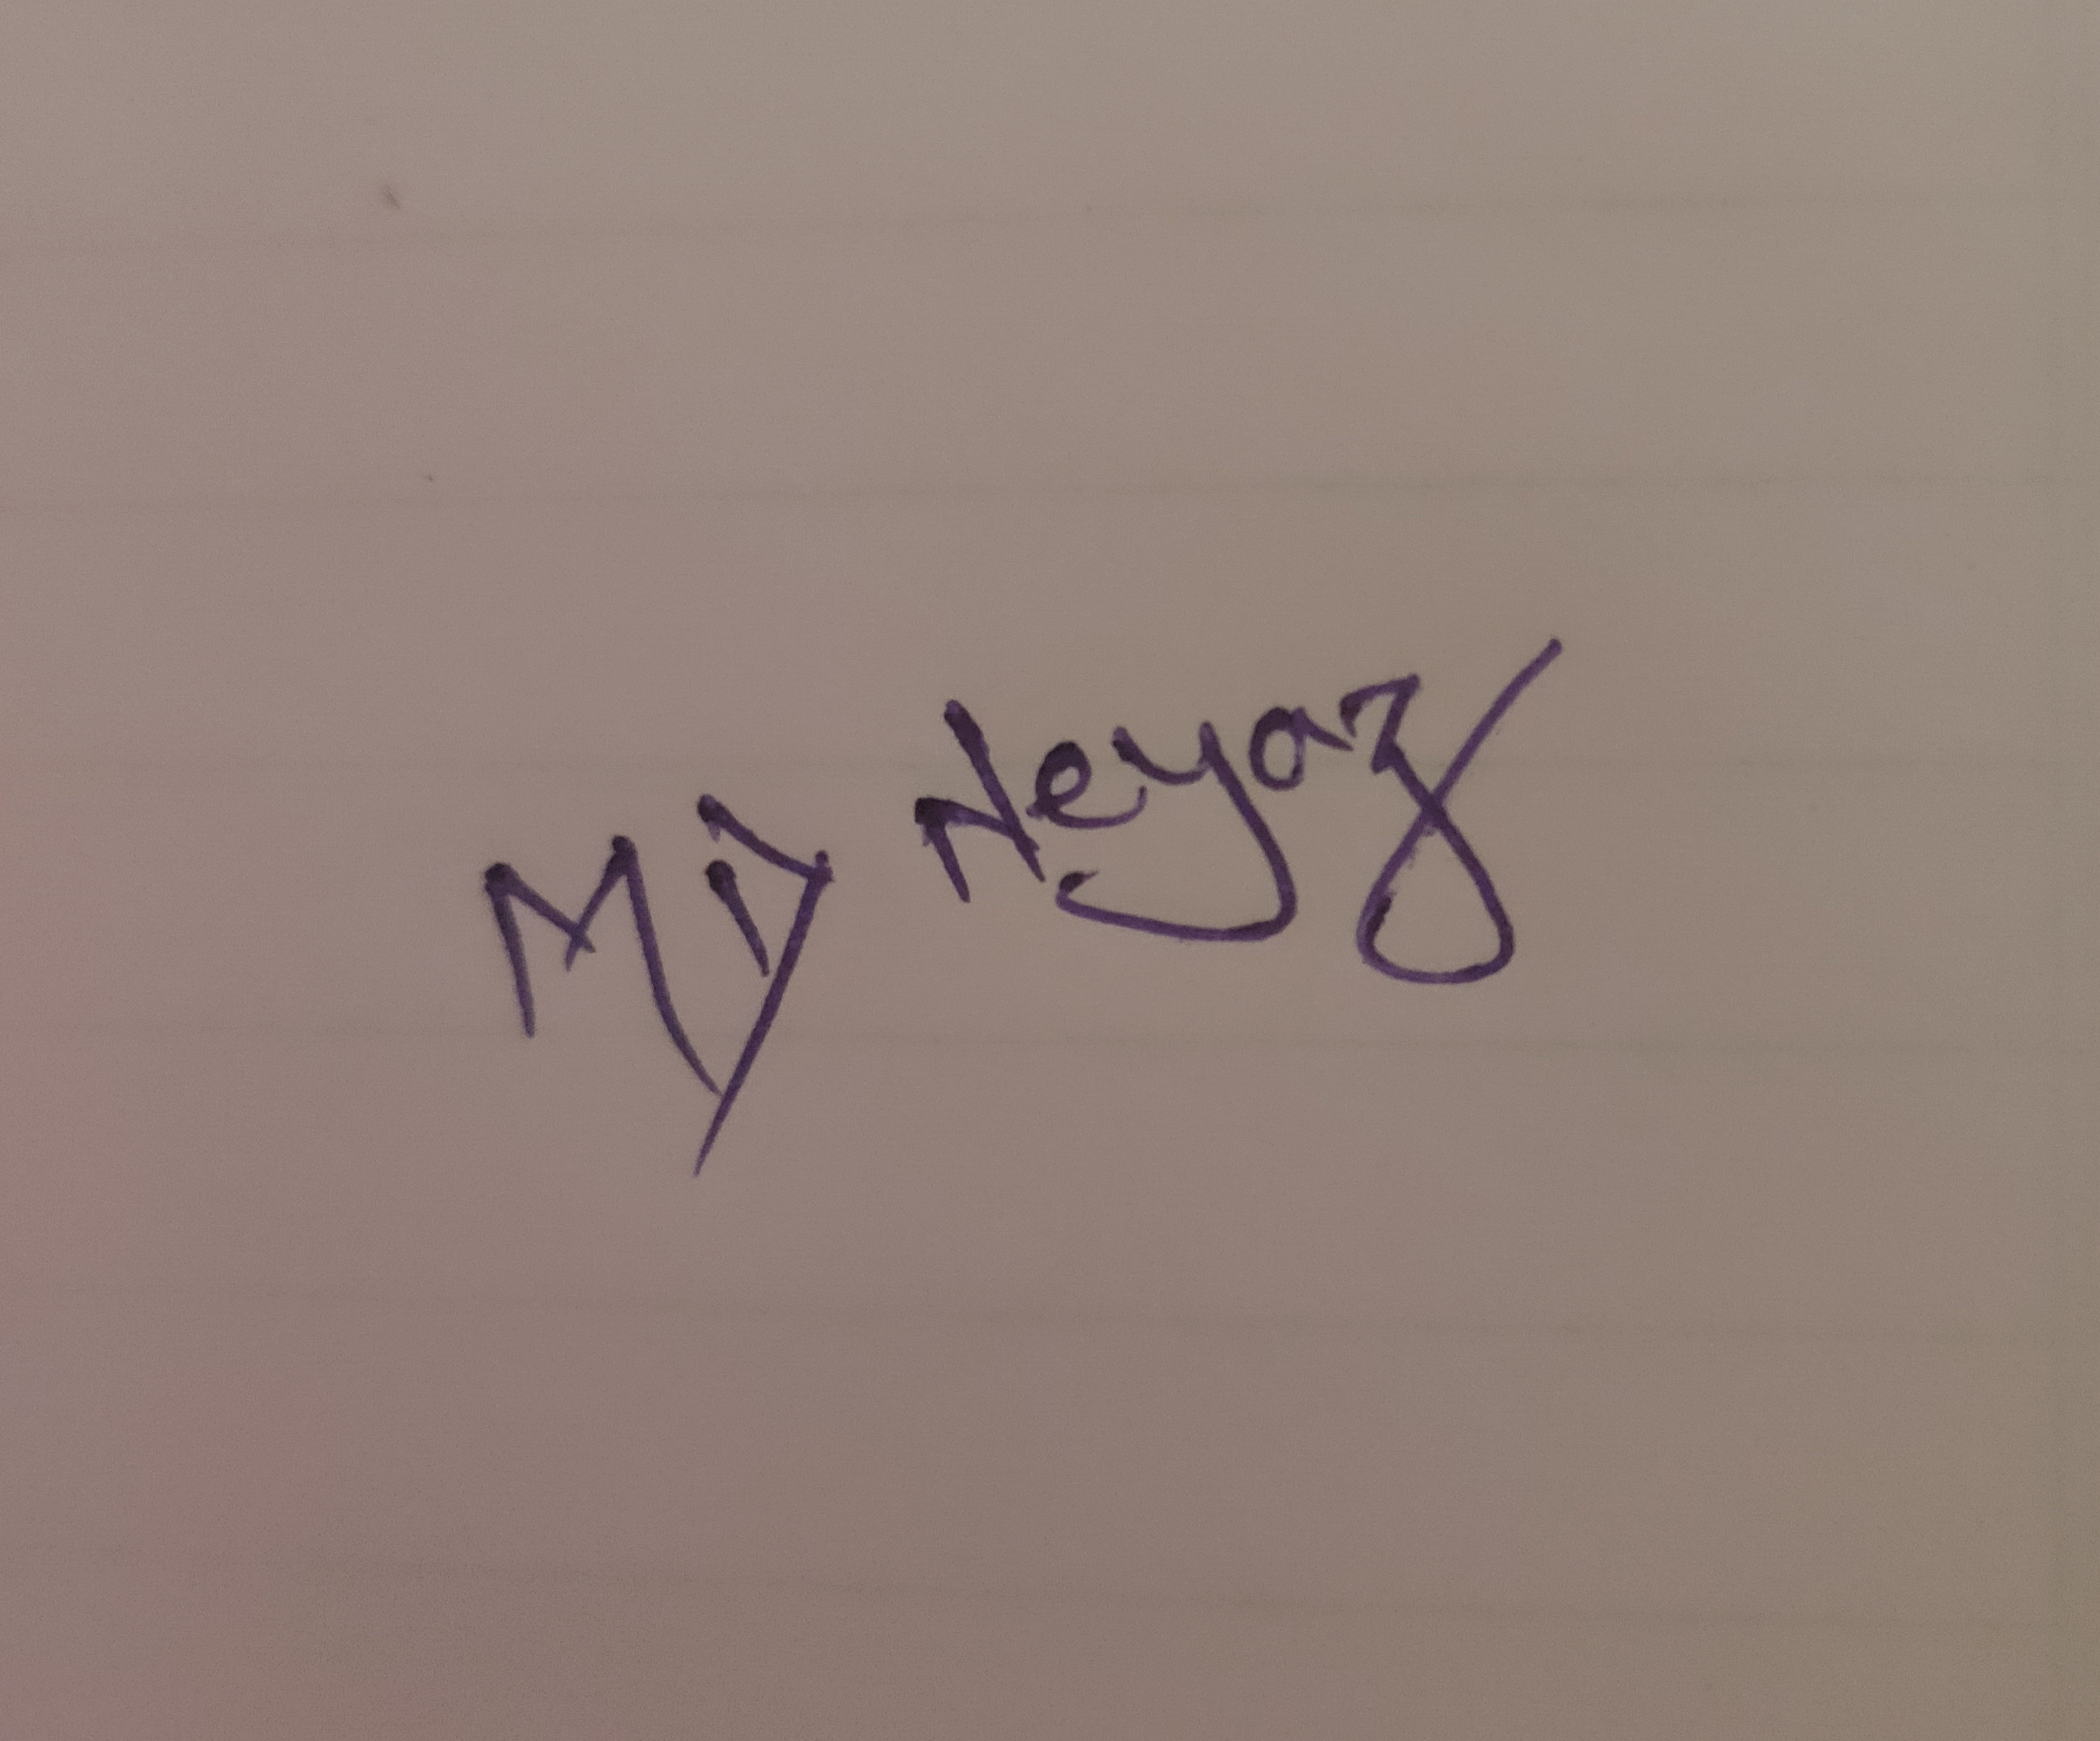 MD Neyaz